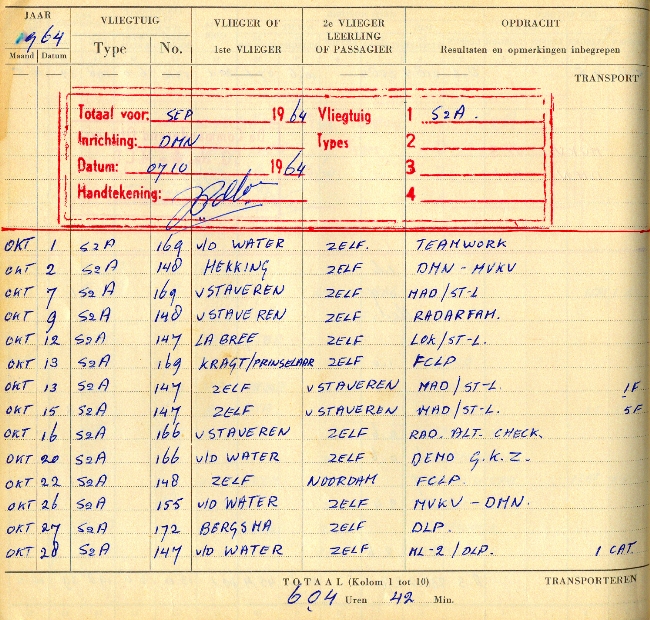 JAAR VLIEGTUIG VLIEGER OF 2e VLIEGER OPDRACHT
1964 LEERLING
Maand Datum Type No. 1ste VLIEGER OF PASSAGIER Resultaten en opmerkingen inbegrepen
TRANSPORT
Totaal voor: SEP 1964 Vliegtuig 1 S2A.
Inrichting: DMN Types 2
Datum: 0710 1964 3
Handtekening: 4
OKT 1 S2A 169 v/D WATER ZELF. TEAMWORK
OKT 2 S2A 148 HEKKING ZELF DMN - MVKV
OKT 7 S2A 169 v STAVEREN ZELF MAD/ST-L
OKT 9 S2A 148 v STAVEREN ZELF RADARFAM.
OKT 12 S2A 147 LA BREE ZELF LOK/ST-L.
OKT 13 S2A 169 KRAGT/PRINSELAAR ZELF FCLP
OKT 13 S2A 147 ZELF v STAVEREN MAD/ST-L. 1F.
OKT 15 S2A 147 ZELF v STAVEREN MAD/ST-L. 5F.
OKT 16 S2A 166 v STAVEREN ZELF RAD. ALT. CHECK.
OKT 20 S2A 166 v/D WATER ZELF DEMO G.K.Z.
OKT 22 S2A 148 ZELF NOORDAM FCLP.
OKT 26 S2A 155 v/D WATER ZELF MVKV - DMN.
OKT 27 S2A 172 BERGSMA ZELF DLP.
OKT 28 S2A 147 v/D WATER ZELF ML-2/DLP. 1 CAT.
TOTAAL (Kolom 1 tot 10) TRANSPORTEREN
604 Uren 42 Min.